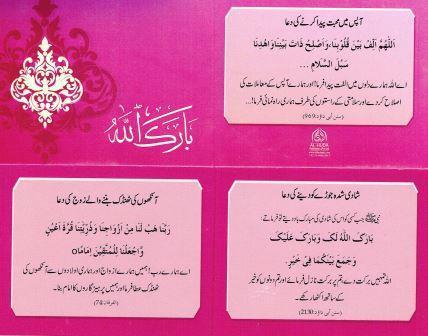 بارک اللہ
آپس میں محبت پیدا کرنے کی دعا
اَللّٰهُمَّ اَلِّفْ بَيْنَ قُلُوْبِنَا، وَاَصْلِحْ ذَاتَ بَيْنِنَا وَاهْدِنَا
سُبُلَ السَّلَامِ ...
اے اللہ ہمارے دلوں میں الفت پیدا فرما اور ہمارے آپس کے معاملات کی
اصلاح کر دے اور سلامتی کے راستوں کی طرف ہماری راہنمائی فرما...
(سنن أبی داؤد:969)
AL-HUDA
آنکھوں کی ٹھنڈک بننے والے زوج کی دعا
رَبَّنَا هَبْ لَنَا مِنْ اَزْوَاجِنَا وَذُرِّيّٰتِنَا قُرَّةَ اَعْيُنٍ
وَّاجْعَلْنَا لِلْمُتَّقِيْنَ اِمَامًا o
اے ہمارے رب! ہمیں ہمارے ازواج اور ہماری اولادوں سے آنکھوں کی
ٹھنڈک عطا فرما اور ہمیں پرہیزگاروں کا امام بنا۔
(الفرقان:74)
شادی شدہ جوڑے کو دینے کی دعا
نبی ﷺ جب کسی کو اس کی شادی کی مبارک باد دیتے تو فرماتے:
بَارَكَ اللّٰهُ لَكَ وَبَارَكَ عَلَيْكَ
وَجَمَعَ بَيْنَكُمَا فِىْ خَيْرٍ.
اللہ تمہیں برکت دے، تم پر برکت نازل فرمائے اور تم دونوں کو خیر
کے ساتھ اکٹھا رکھے۔
(سنن أبی داؤد:2130)